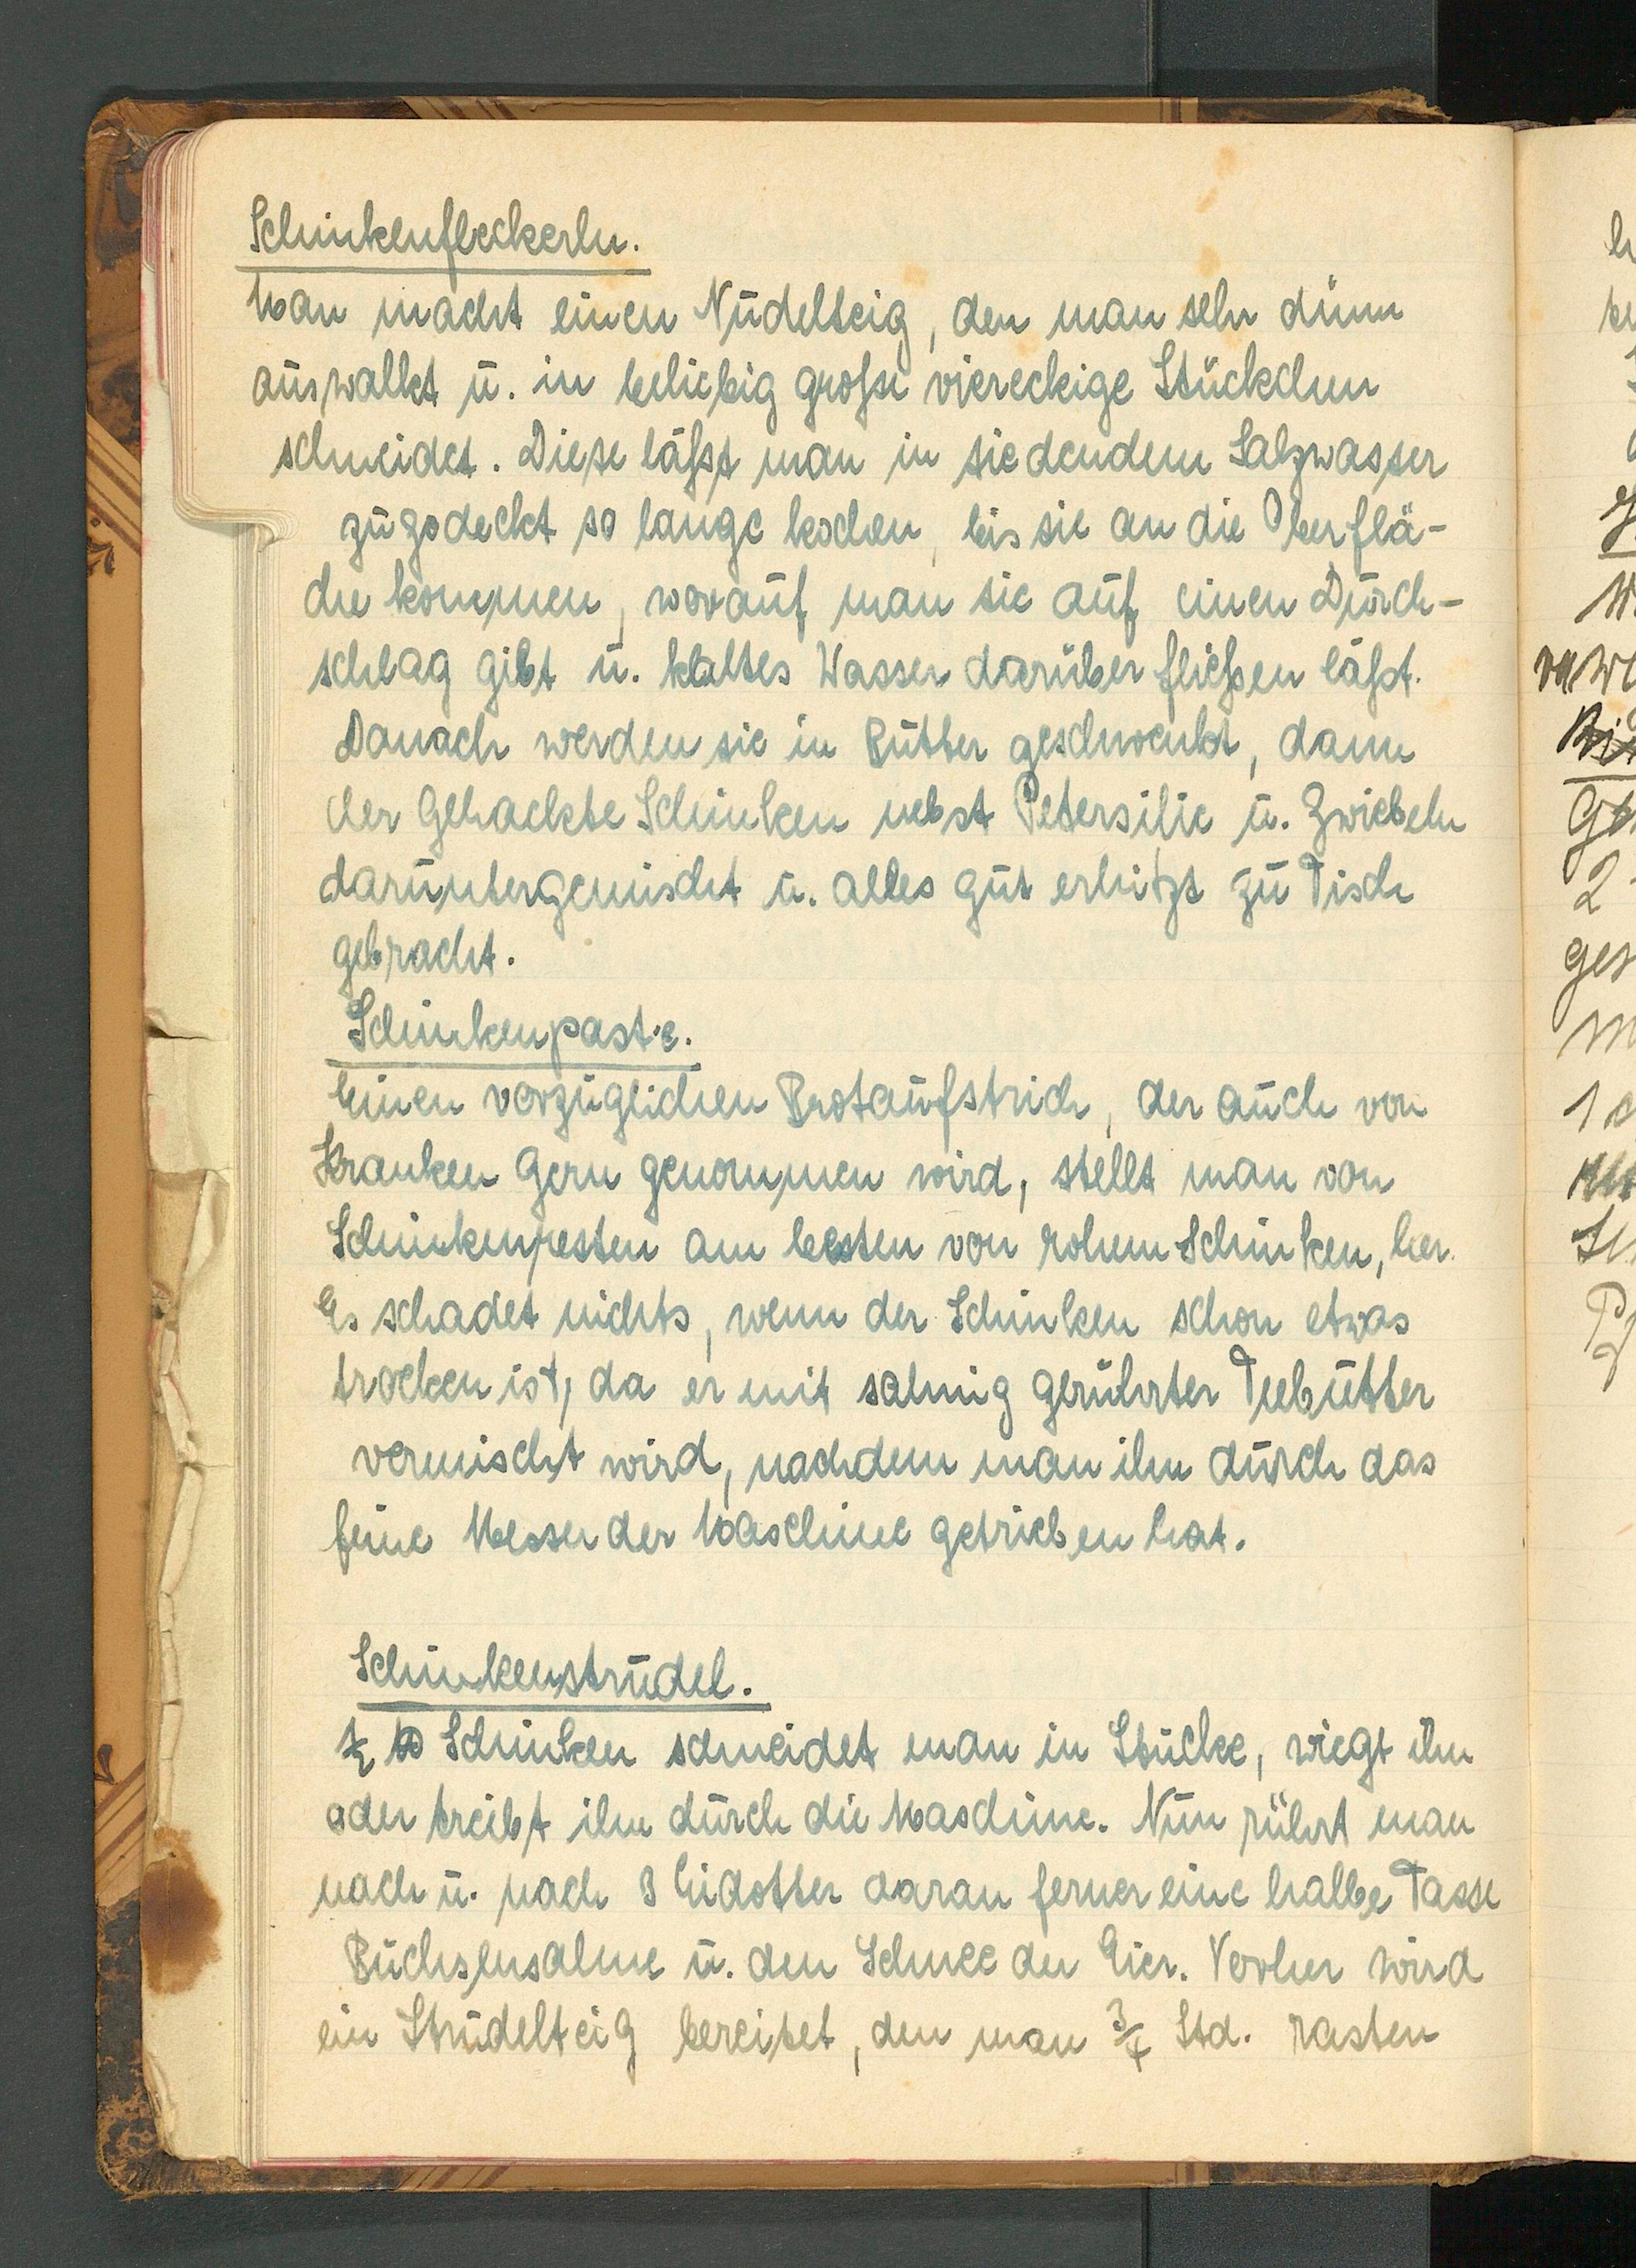 Schinkenfleckerln.
Man macht einen Nudelteig, den man sehr dünn
auswalkt u. in beliebig große viereckige Stückchen
schneidet. Diese läßt man in siedendem Salzwasser
zugedeckt so lange kochen, bis sie an die Oberflä-
che kommen, worauf man sie auf einen Durch-
schlag gibt u. kaltes Wasser darüber fließen läßt.
Danach werden sie in Butter geschwenkt, dann
der gehackte Schinken nebst Petersilie u. Zwiebeln
daruntergemischt u. alles gut erhitzt zu Tisch
gebracht.
Schinkenpaste.
Einen vorzüglichen Brotaufstrich, der auch von
Kranken gern genommen wird, stellt man von
Schinkenresten am besten von rohem Schinken, her.
Es schadet nichts, wenn der Schinken schon etwas
trocken ist, da er mit sahnig gerührter Teebutter
vermischt wird, nachdem man ihn durch das
feine Messer der Maschine getrieben hat.
Schinkenstrudel.
½ ℔ Schinken schneidet man in Stücke, wiegt ihn
oder treibt ihn durch die Maschine. Nun rührt man
nach u. nach 3 Eidotter daran ferner eine halbe Tasse
Büchsensahne u. den Schnee der Eier. Vorher wird
ein Strudelteig bereitet, den man ¾ Std. rasten